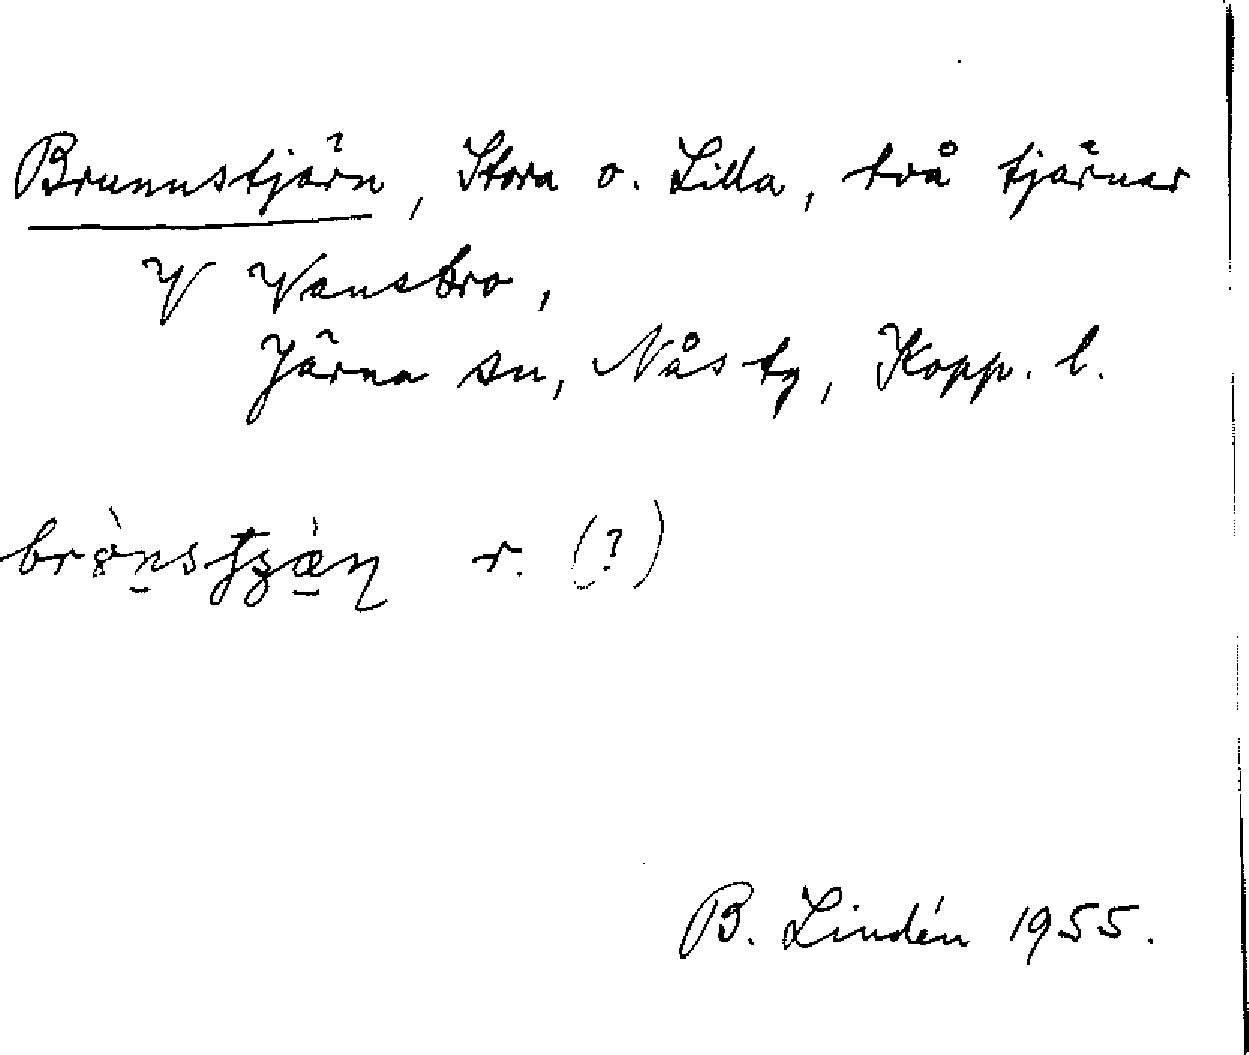 Brunnstjärn, Stora o. Lilla, två tjärner
V Vansbro,
Järna sn, Nås tg, Kopp. l.
r. (?)
B. Lindén 1955.